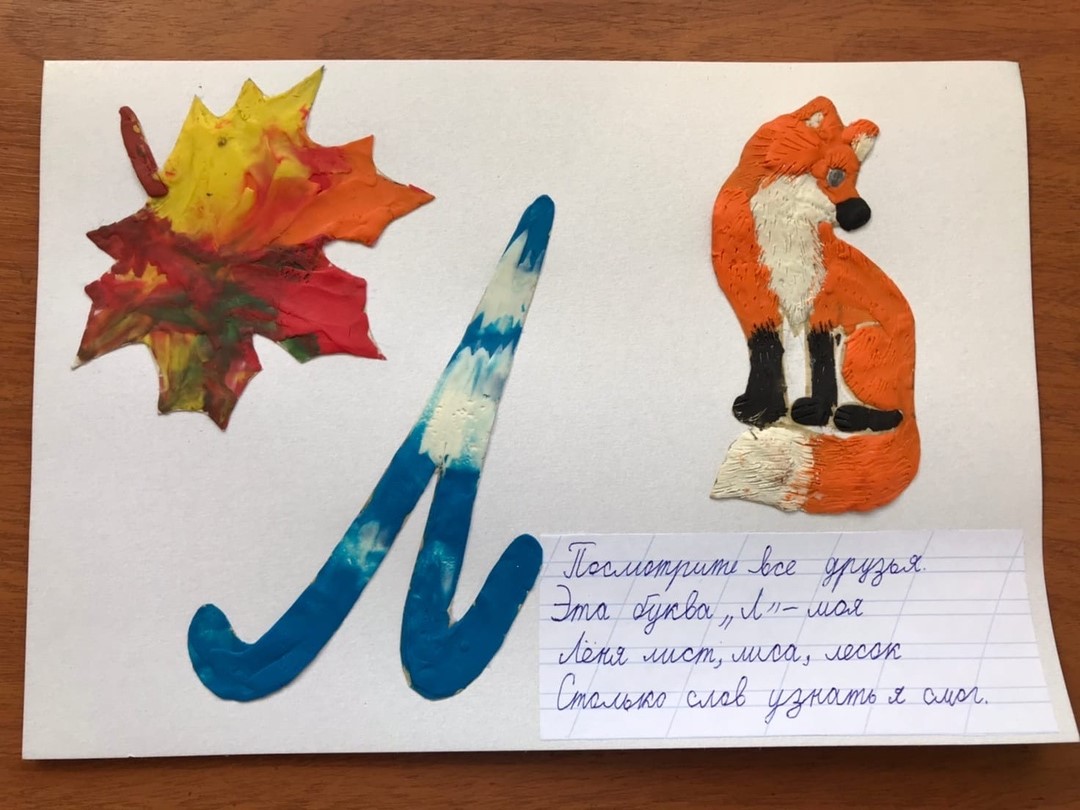 Л
Посмотрите все друзья.
Эта буква „Л"– моя
Лёня лист, лиса, лесок
Столько слов узнать я смог.